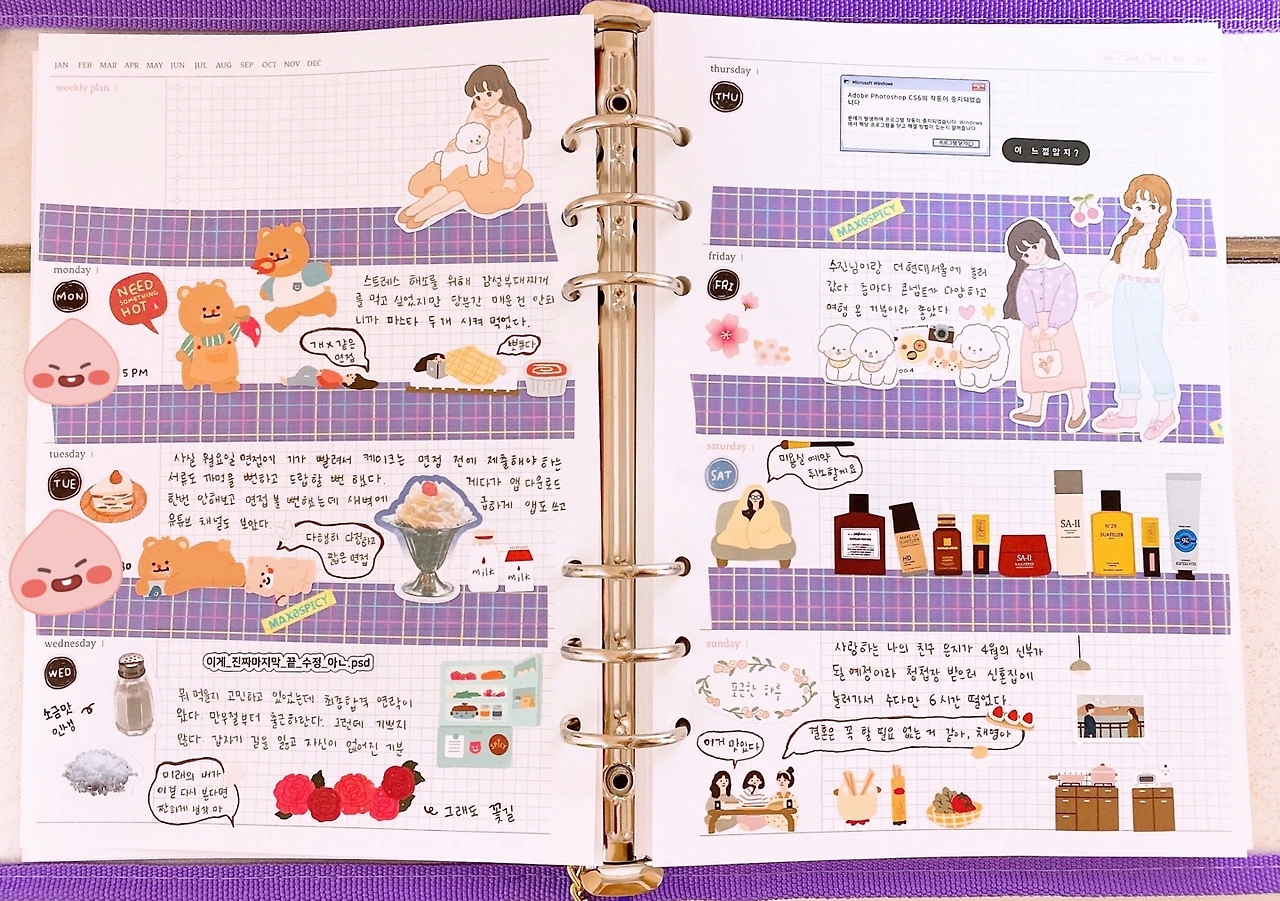 JAN FEB MAR APR MAY JUN JUL AUG SEP OCT NOV DEC
weekly plan
monday
MON
NEED SOMETHING HOT!
스트레스 해소를 위해 감성부대찌개
를 먹고 싶었지만 당분간 매운건 안되
니까 파스타 두개 시켜 먹었다.
개X같은
면접
뽀큐다
5 PM
tuesday
TUE
사실 월요일 면접에 기가 빨려서 케이크는 면접 전에 제출해야 하는
서류도 까먹을 뻔하고 드랍할 뻔 했다. 게다가 앱 다운로드
한번 안해보고 면접볼 뻔했는데 새벽에 급하게 앱도 쓰고
유튜브 채널도 보았다.
다행히 다정하고
짧은 면접
30
milk
milk
MAX@SPICY
wednesday
WED
이게_진짜마지막_끝_수정_아ㄴ.psd
소금만
인생
뭐 먹을지 고민하고 있었는데 최종합격 연락이
왔다. 만우절부터 출근하란다. 그런데 기쁘지
않다. 갑자기 길을 잃고 자신이 없어진 기분
SPICY
미래의 내가
이걸 다시 본다면
짠하게 생각 마
그래도 꽃길
thursday
THU
Microsoft Windows
Adobe Photoshop CS6의 작동이 중지되었습
니다
문제가 발생하여 프로그램 작동이 중지되었습니다. Windows
에서 해당 프로그램을 닫고 해결 방법이 있는지 알려줍니다.
프로그램 닫기
이 느낌알지?
MAX@SPICY
friday
FRI
수진님이랑 더현대서울에 놀러
갔다. 층마다 콘셉트가 다양하고
여행 온 기분이라 좋았다
saturday
SAT
미용실 예약
취소할게요
MAKE UP
HD
SA-II
SA-II
N°26
SUATELIER
sunday
포근한 하루
사랑하는 나의 친구 은지가 4월의 신부가
될 예정이라 청첩장 받으러 신혼집에
놀러가서 수다만 6시간 떨었다.
이거 맛있다
결혼은 꼭 할 필요 없는 거 같아, 채영아